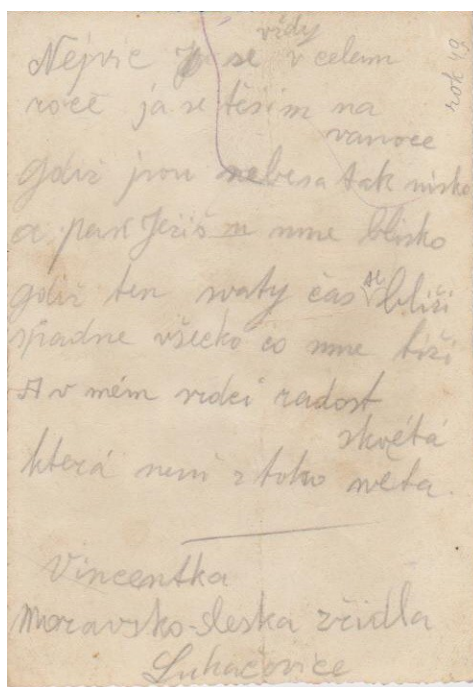 vždy
Nejvic se v celem
roce ja se těsim na
vanoce
gdiž jsou nebesa tak nisko
a pak Ježiš mne blisko
gdiž ten svaty čas se bliži
spadne všecko co mne tiži
A v mém srdci radost
skvětá
která neni z toho světa.
Vincentka
Moravsko-sleska zřidla
Luhačovice
rok 49